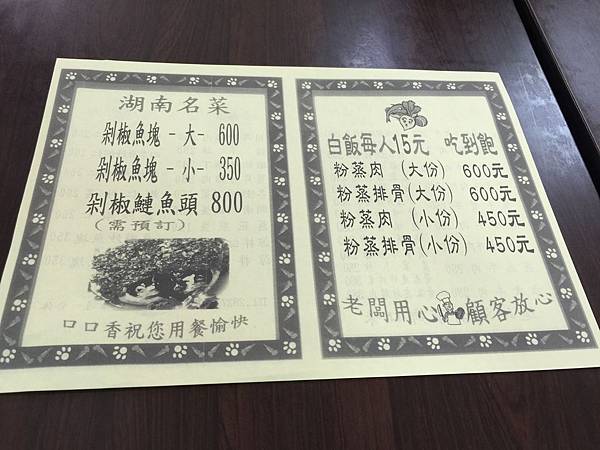 湖南名菜
剁椒魚塊 - 大 - 600
剁椒魚塊 - 小 - 350
剁椒鰱魚頭 800
(需預訂)
口口香祝您用餐愉快
白飯每人15元 吃到飽
粉蒸肉 (大份) 600元
粉蒸排骨(大份) 600元
粉蒸肉 (小份) 450元
粉蒸排骨(小份) 450元
老闆用心 顧客放心